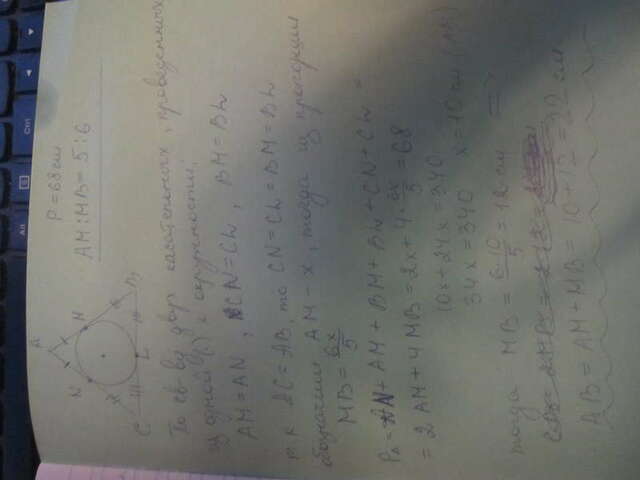 Alt
Ctrl
A
P = 68 см
N
AM:MB = 5:6
C
L
B
По св-ву двух касательных, проведенных
из одной (·) к окружности:
AM = AN , CN = CL , BM = BL
т.к. AC = AB, то CN = CL = BM = BL
обозначим AM - x, тогда из пропорции
MB = 6x/5
P△ = AN + AM + BM + BL + CN + CL =
= 2AM + 4MB = 2x + 4 · 6x/5 = 68
10x + 24x = 340
34x = 340 x = 10 см (AM)
тогда MB = 6·10/5 = 12 см =>
AB = AM + MB = 10 + 12 = 22 см.